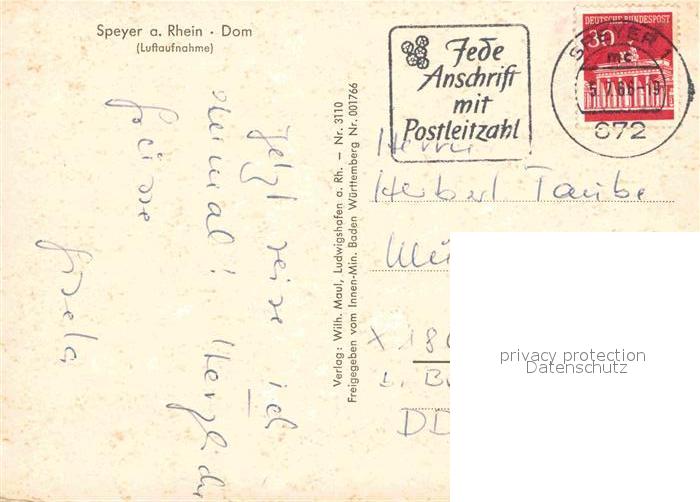 Speyer a. Rhein · Dom
(Luftaufnahme)
Jetzt reise ich
einmal! Herzliche
Grüsse
Gisela
Verlag: Wilh. Maul, Ludwigshafen a. Rh. — Nr. 3110
Freigegeben vom Innen-Min. Baden Württemberg Nr. 001766
Jede
Anschrift
mit
Postleitzahl
DEUTSCHE BUNDESPOST
30
SPEYER 1
mc
672
Herrn
Herbert Taube
X
DD
privacy protection
Datenschutz